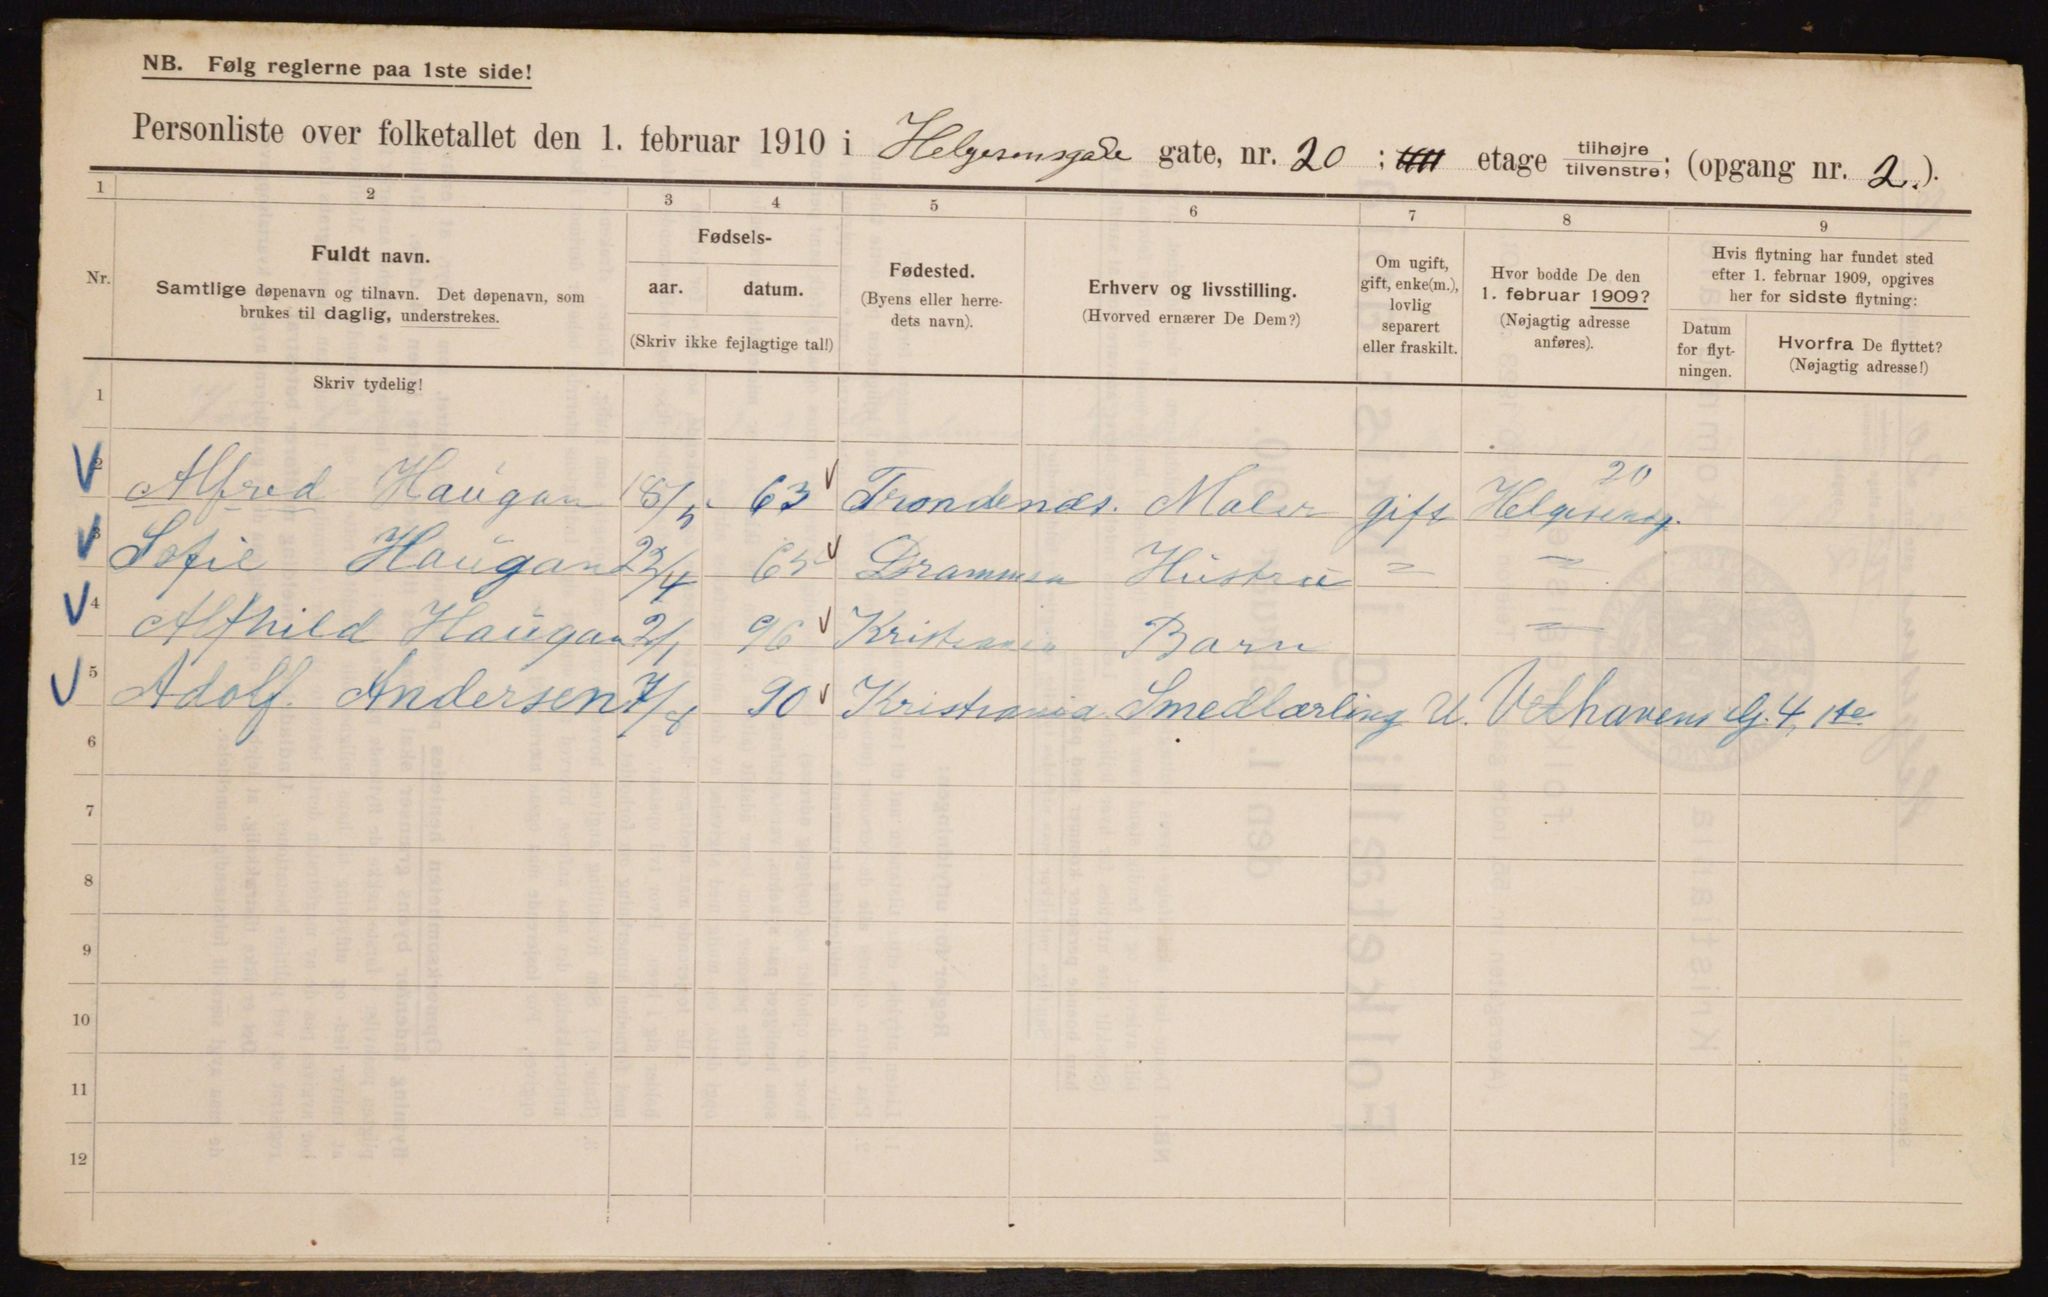 NB. Følg reglerne paa 1ste side!
Personliste over folketallet den 1. februar 1910 i Helgesensgade gate, nr. 20 ; etage tilhøjre / tilvenstre; (opgang nr. 2.).
1 2 3 4 5 6 7 8 9
Nr.
Fuldt navn.
Samtlige døpenavn og tilnavn. Det døpenavn, som
brukes til daglig, understrekes.
Fødsels-
aar. datum.
(Skriv ikke fejlagtige tal!)
Fødested.
(Byens eller herre-
dets navn).
Erhverv og livsstilling.
(Hvorved ernærer De Dem?)
Om ugift,
gift, enke(m.),
lovlig
separert
eller fraskilt.
Hvor bodde De den
1. februar 1909?
(Nøjagtig adresse
anføres).
Hvis flytning har fundet sted
efter 1. februar 1909, opgives
her for sidste flytning:
Datum
for flyt-
ningen.
Hvorfra De flyttet?
(Nøjagtig adresse!)
Skriv tydelig!
1
2 Alfred Haugan 18/5 63 Trondenæs. Maler gift Helgesensg. 20
3 Sofie Haugan 23/4 65 Drammen Hustru " "
4 Alfhild Haugan 2/1 96 Kristiania Barn "
5 Adolf. Andersen 7/8 90 Kristiania Smedlærling U. Velhavens G. 4, 1te
6
7
8
9
10
11
12